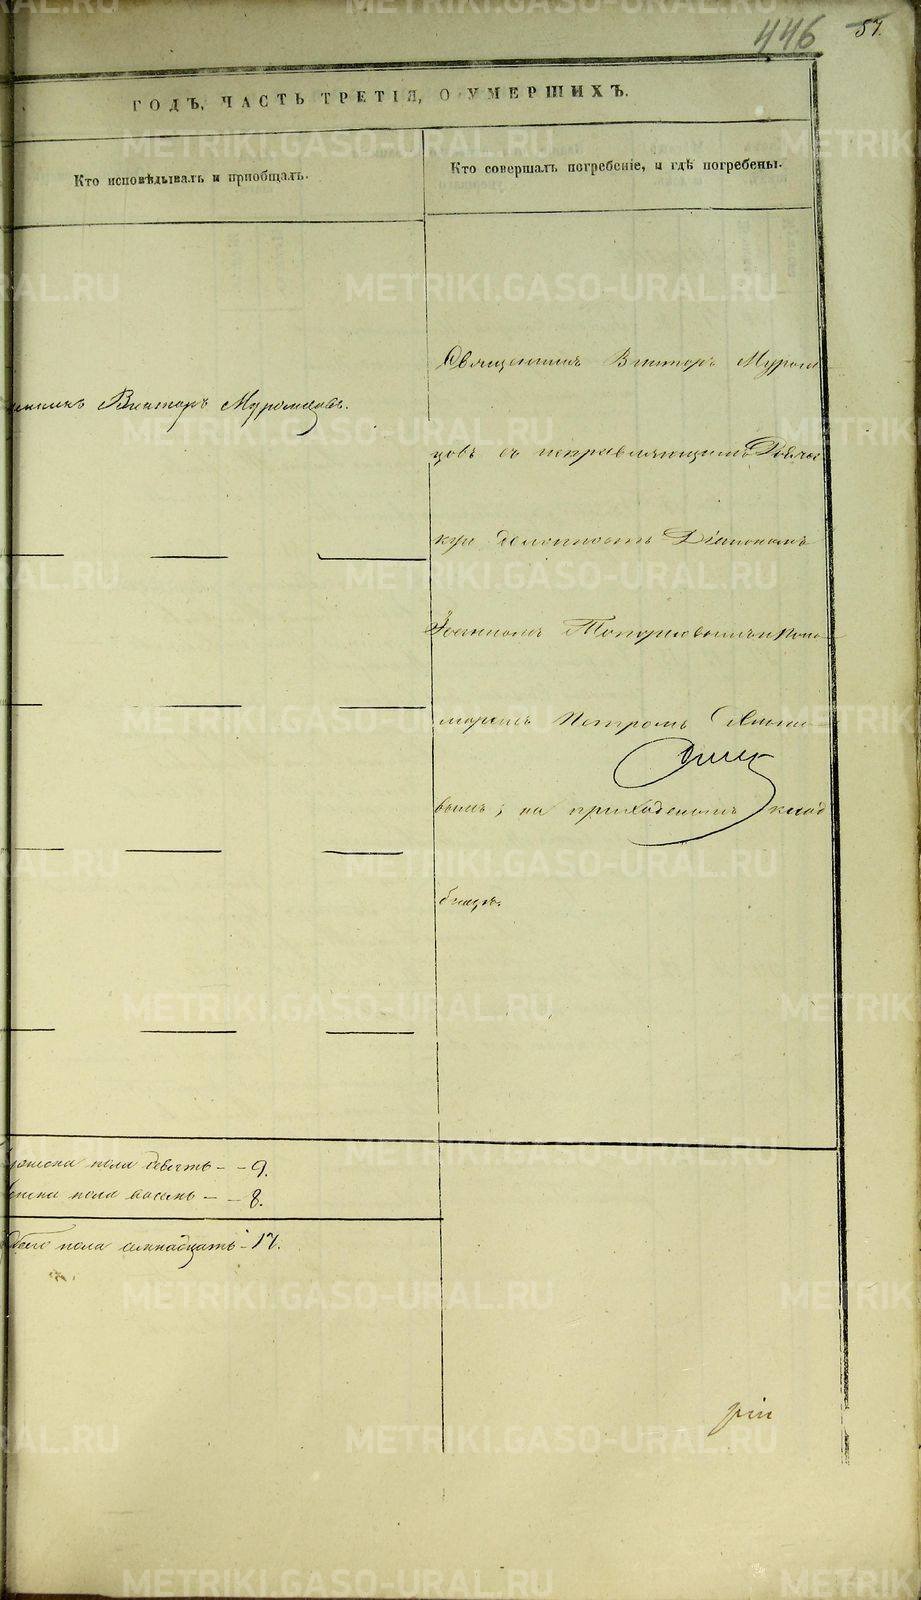 446 57.
ГОДЪ, ЧАСТЬ ТРЕТІЯ, О УМЕРШИХЪ.
Кто исповѣдывалъ и пріобщалъ.
Кто совершалъ погребеніе, и гдѣ погребены.
Викторъ Муромцовъ.
Священникъ Викторъ Муром
цовъ съ исправляющимъ
должность Діакономъ
Іоанномъ и Поно
маремъ Петромъ
вымъ, на приходскомъ клад
бищѣ.
пола девять - - 9.
пола восемь - - 8.
Обоего пола семнадцать - 17.
METRIKI.GASO-URAL.RU